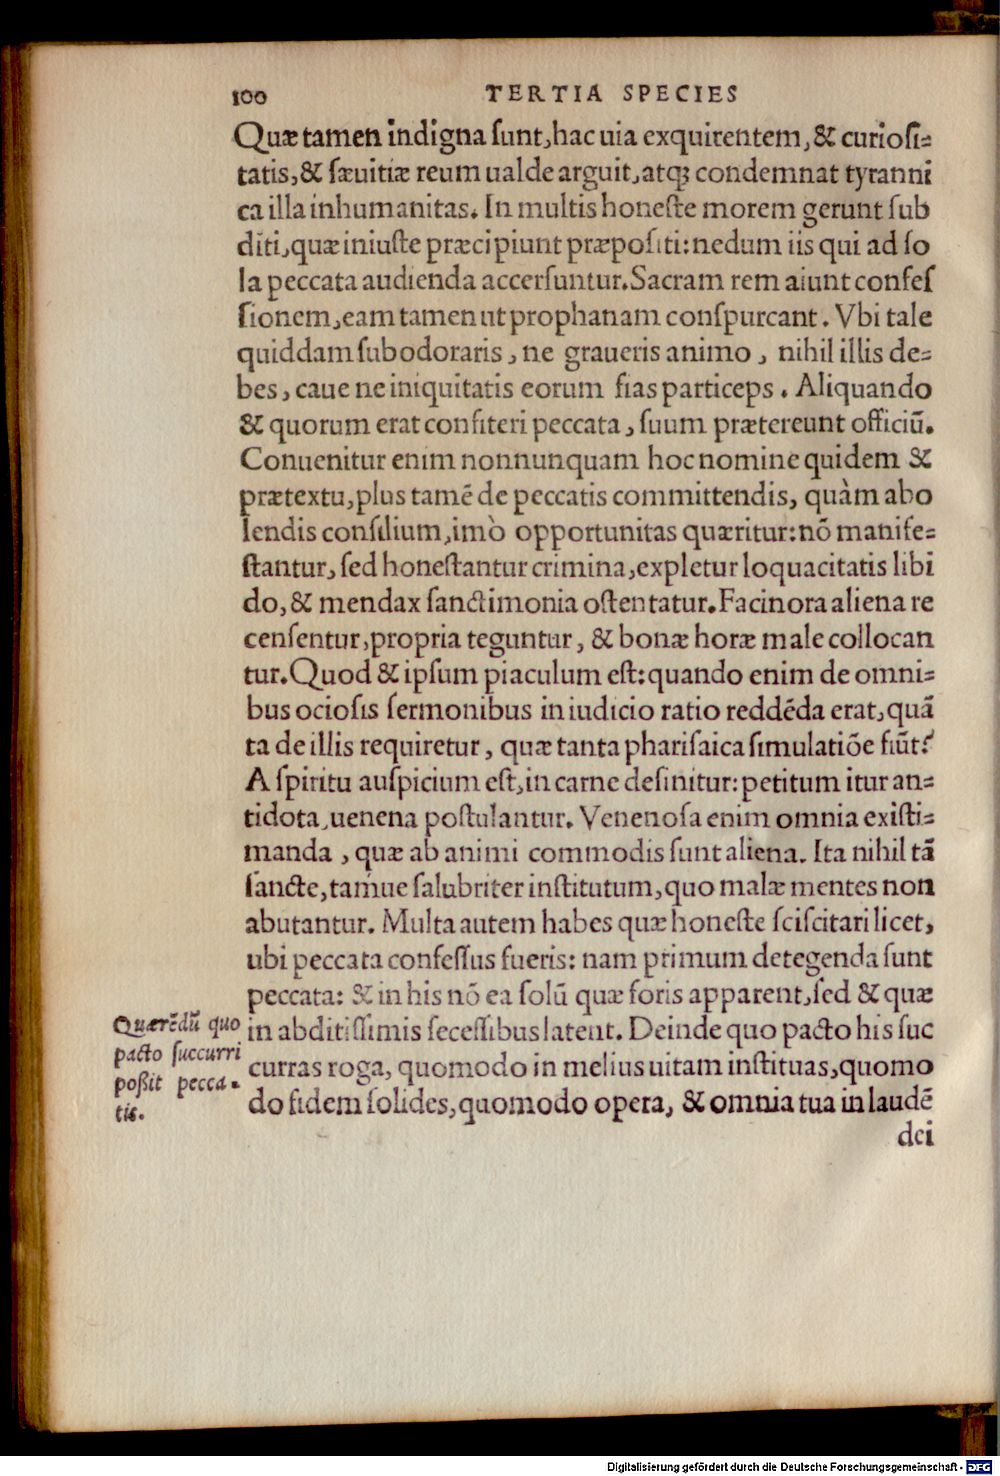 100 TERTIA SPECIES
Quæ tamen indigna sunt, hac uia exquirentem, & curiosi=
tatis, & sæuitiæ reum ualde arguit, atq; condemnat tyranni
ca illa inhumanitas. In multis honeste morem gerunt sub
diti, quæ iniuste præcipiunt præpositi: nedum iis qui ad so
la peccata audienda accersuntur. Sacram rem aiunt confes
sionem, eam tamen ut prophanam conspurcant. Vbi tale
quiddam subodoraris, ne graueris animo, nihil illis de=
bes, caue ne iniquitatis eorum fias particeps. Aliquando
& quorum erat confiteri peccata, suum prætereunt officiū.
Conuenitur enim nonnunquam hoc nomine quidem &
prætextu, plus tamē de peccatis committendis, quàm abo
lendis consilium, imò opportunitas quæritur: nō manife=
stantur, sed honestantur crimina, expletur loquacitatis libi
do, & mendax sanctimonia ostentatur. Facinora aliena re
censentur, propria teguntur, & bonæ horæ male collocan
tur. Quod & ipsum piaculum est: quando enim de omni=
bus ociosis sermonibus in iudicio ratio reddēda erat, quā
ta de illis requiretur, quæ tanta pharisaica simulatiōe fiūt?
A spiritu auspicium est, in carne desinitur: petitum itur an=
tidota, uenena postulantur. Venenosa enim omnia existi=
manda, quæ ab animi commodis sunt aliena. Ita nihil tā
sancte, tamue salubriter institutum, quo malæ mentes non
abutantur. Multa autem habes quæ honeste sciscitari licet,
ubi peccata confessus fueris: nam primum detegenda sunt
peccata: & in his nō ea solū quæ foris apparent, sed & quæ
in abditissimis secessibus latent. Deinde quo pacto his suc
curras roga, quomodo in melius uitam instituas, quomo
do fidem solides, quomodo opera, & omnia tua in laudē
dei
Quærēdū quo
pacto succurri
poßit pecca=
tis.
Digitalisierung gefördert durch die Deutsche Forschungsgemeinschaft - DFG